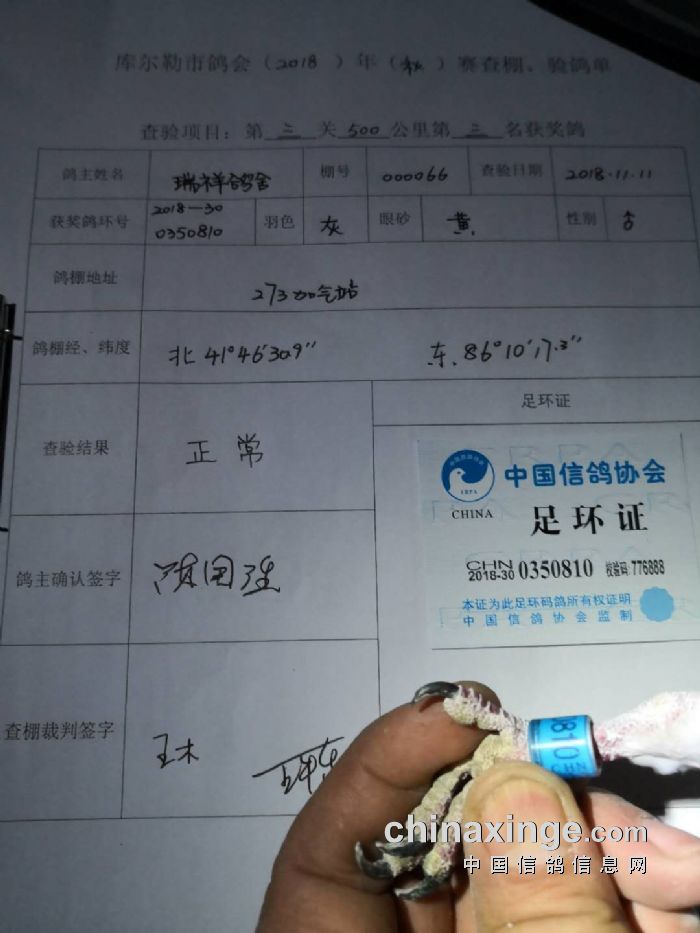 库尔勒市鸽会（2018 ）年（秋）赛查棚、验鸽单
查验项目：第 三 关 500 公里第 三 名获奖鸽
鸽主姓名 瑞祥鸽舍 棚号 000066 查验日期 2018.11.11
获奖鸽环号 2018-30 0350810 羽色 灰 眼砂 黄 性别
鸽棚地址 273加气站
鸽棚经、纬度 北 41°46′30.9″ 东. 86°10′17.3″
查验结果 正常
足环证
中国信鸽协会
CRPA
CHINA
足环证
CHN
2018-30 0350810 校验码:776888
本证为此足环码鸽所有权证明
中国信鸽协会监制
鸽主确认签字
查棚裁判签字 王木
0810
chinaxinge.com
中国信鸽信息网